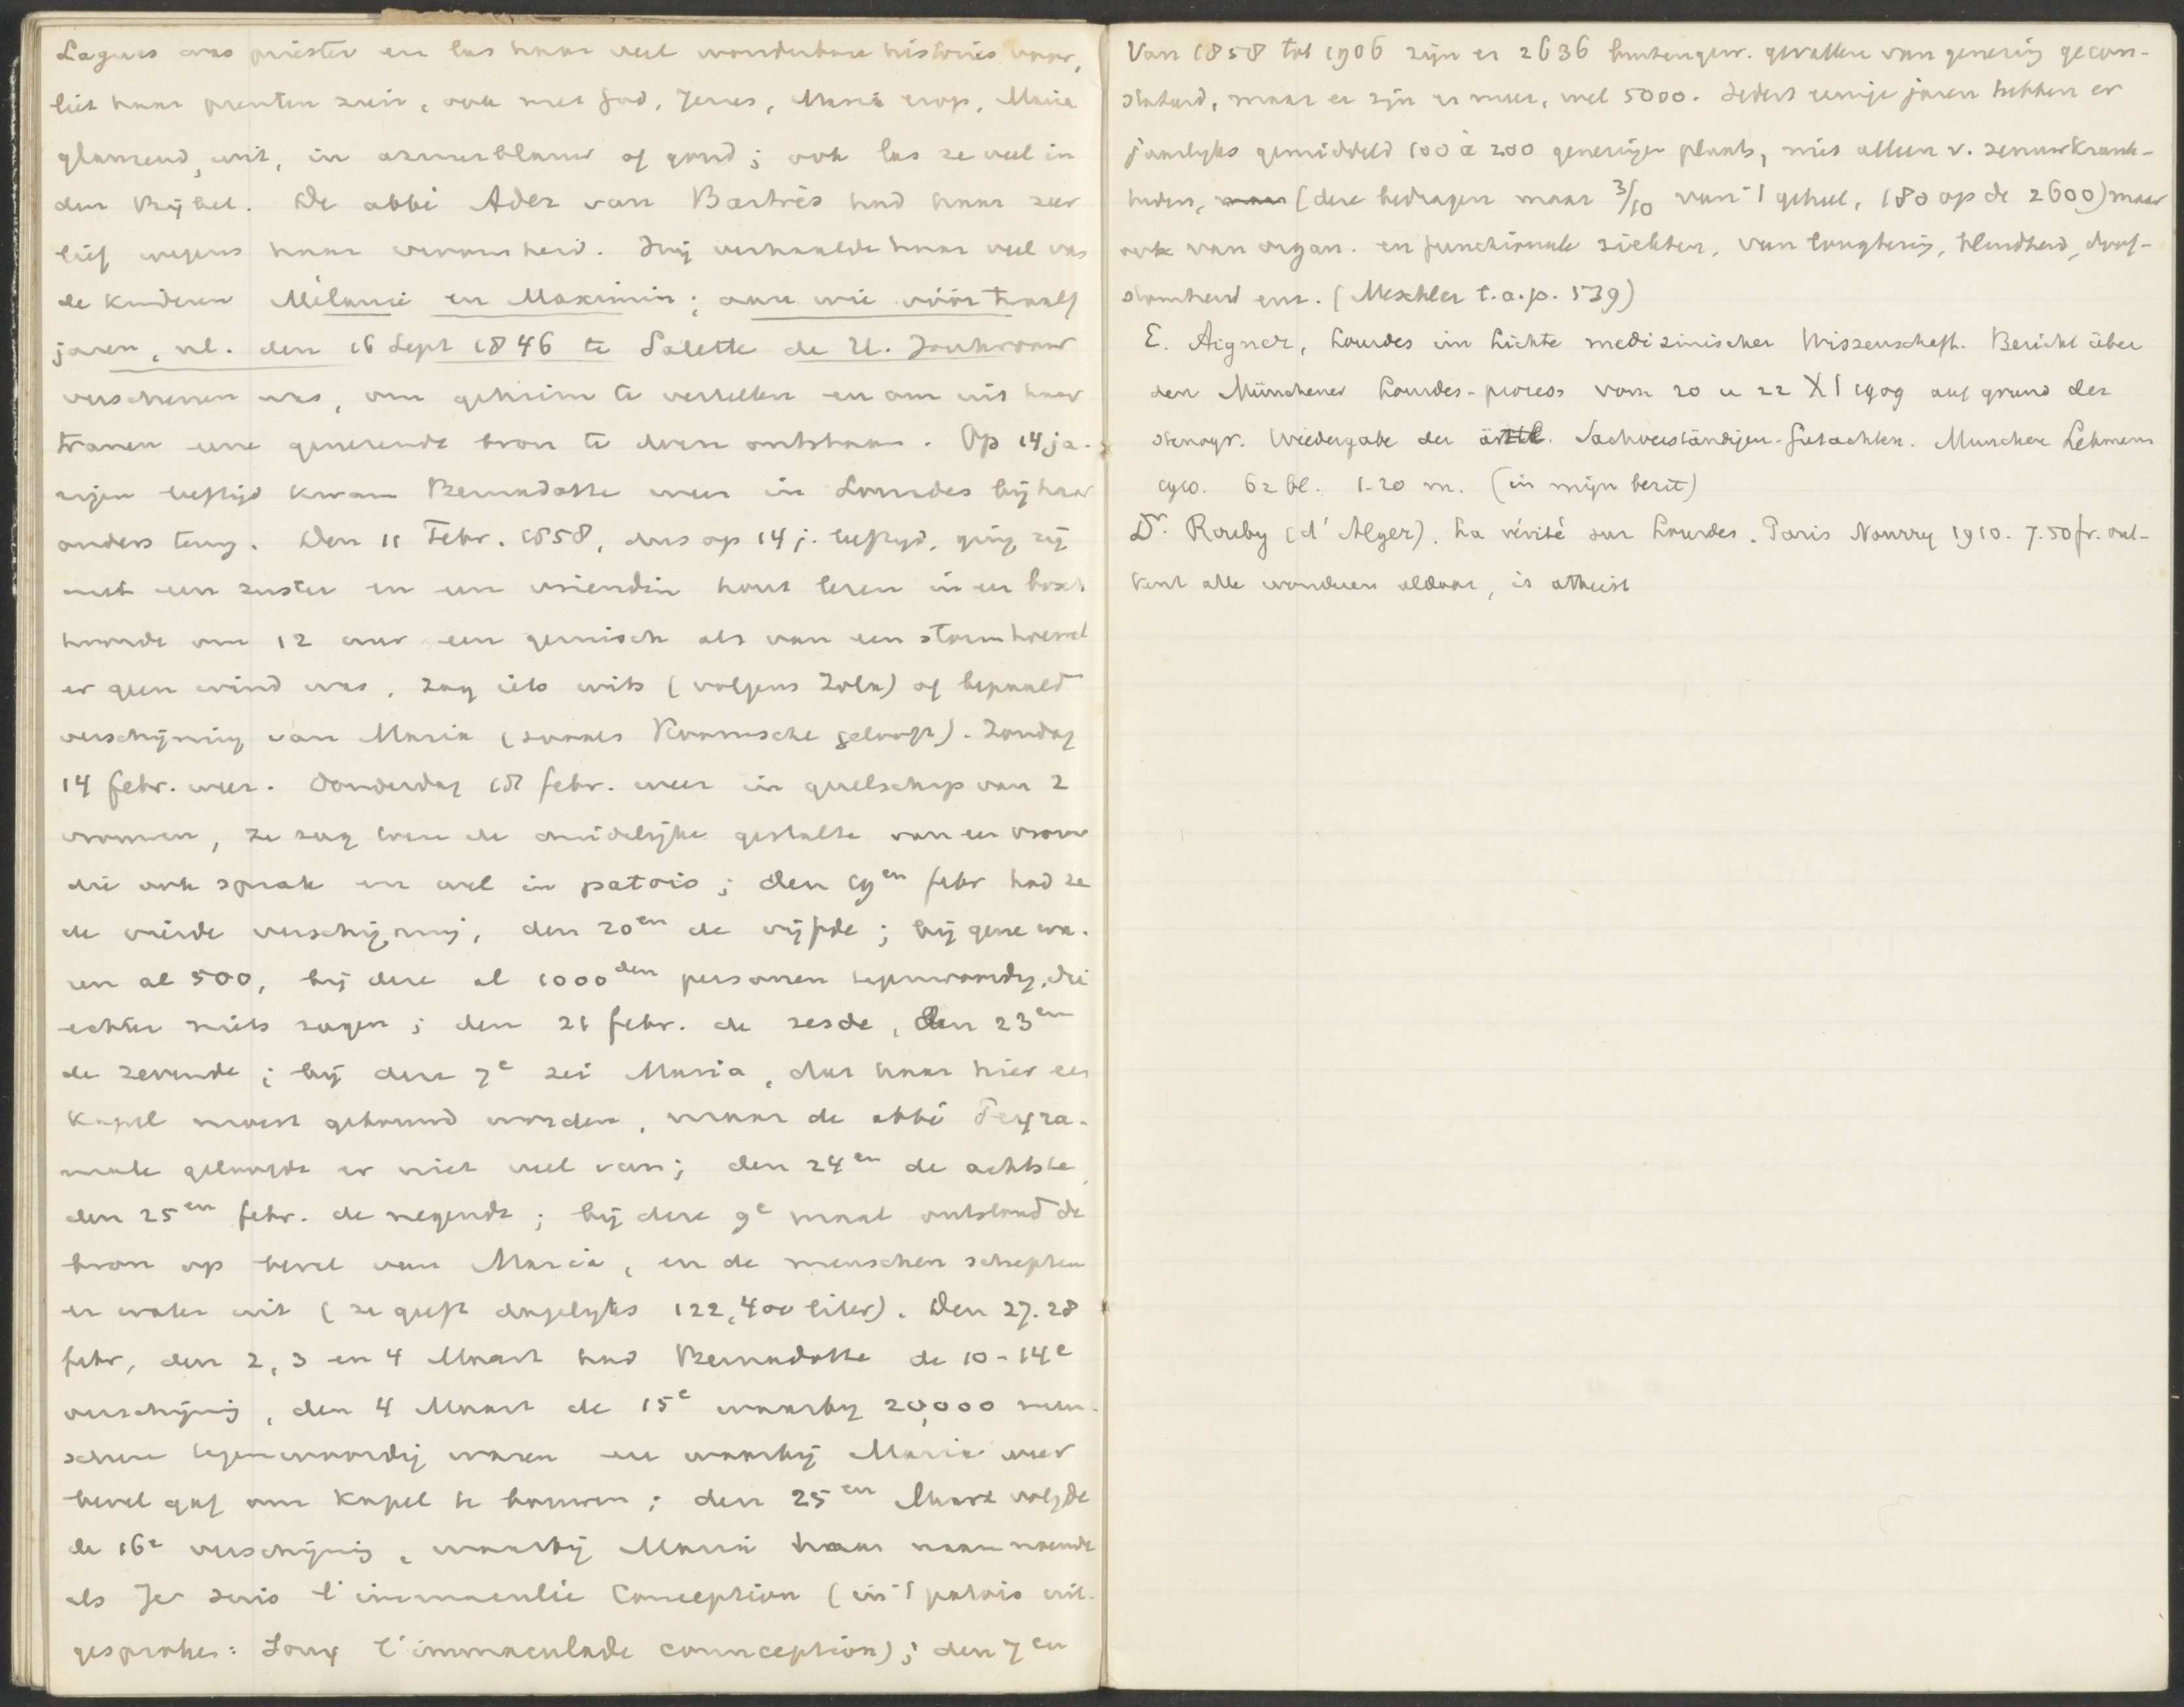 Lagues was priester en las haar veel wonderbare histories voor,
liet haar prenten zien, ook met God, Jezus, Maria erop, Maria
glanzend, wit, in azuurblauw of goud; ook las ze veel in
den Bijbel. De abbé Ader van Bartrès had haar zeer
lief wegens haar vroomheid. Hij verhaalde haar veel van
de kinderen Mélanie en Maximin; aan wie vóór twaalf
jaren, nl. den 16 Sept 1846 te Salette de H. Jonkvrouw
verschenen was, om geheim te vertellen en om uit haar
tranen eene genezende bron te doen ontstaan. Op 14 ja-
rigen leeftijd kwam Bernadotte weer in Lourdes bij haar
ouders terug. Den 11 Febr. 1858, dus op 14 j. leeftijd, ging zij
met een zuster en een vriendin hout lezen in en bosch
hoorde om 12 uur een geruisch als van een storm hoewel
er geen wind was, zag iets wits (volgens Zola) of bepaald
verschijning van Maria (zooals Roomsche gelooft). Zondag
14 febr. weer. Donderdag 18 febr. weer in gezelschap van 2
vrouwen, ze zag toen de duidelijke gestalte van en vrouw
die ook sprak en wel in patois; den 19en febr had ze
de vierde verschijning, den 20en de vijfde; bij gene wa-
ren al 500, bij deze al 1000den personen tegenwoordig, die
echter niets zagen; den 21 febr. de zesde, den 23en
de zevende; bij deze 7e zei Maria, dat haar hier een
kapel moest gebouwd worden, maar de abbé Peyra-
male geloofde er niet veel van; den 24en de achtste,
den 25en febr. de negende; bij deze 9e maal ontstond de
bron op bevel van Maria, en de menschen schepten
er water uit (ze geeft dagelijks 122,400 liter). Den 27. 28
febr, den 2, 3 en 4 Maart had Bernadotte de 10-14e
verschijning, den 4 Maart de 15e waarbij 20,000 men-
schen tegenwoordig waren en waarbij Maria weer
bevel gaf om kapel te bouwen; den 25en Maart volgde
de 16e verschijning, waarbij Maria haar naam noemde
als Je suis l'immaculée Conception (in 't patois uit-
gesproken: Souy l'immaculade counception); den 7en
Van 1858 tot 1906 zijn er 2636 buitengew. gevallen van genezing gecon-
stateerd, maar er zijn er meer, wel 5000. Sedert eenige jaren hebben er
jaarlijks gemiddeld 100 à 200 genezingen plaats, niet alleen v. zenuwkrank-
heden, maar (deze bedragen maar 3/10 van 't geheel, 180 op de 2600) maar
ook van organ. en functionele ziekten, van longtering, blindheid, doof-
stomheid enz. (Meschler t.a.p. 539)
E. Aigner, Lourdes im Lichte medizinischer Wissenschaft. Bericht über
den Münchener Lourdes-prozess vom 20 u 22 XI 1909 auf grund der
stenogr. Wiedergabe der ärztl. Sachverständigen-Gutachten. München Lehmann
1910. 62 bl. 1.20 m. (in mijn bezit)
Dr. Rouby (d'Alger). La vérité sur Lourdes. Paris Nourry 1910. 7.50 fr. ont-
kent alle wonderen aldaar, is atheist